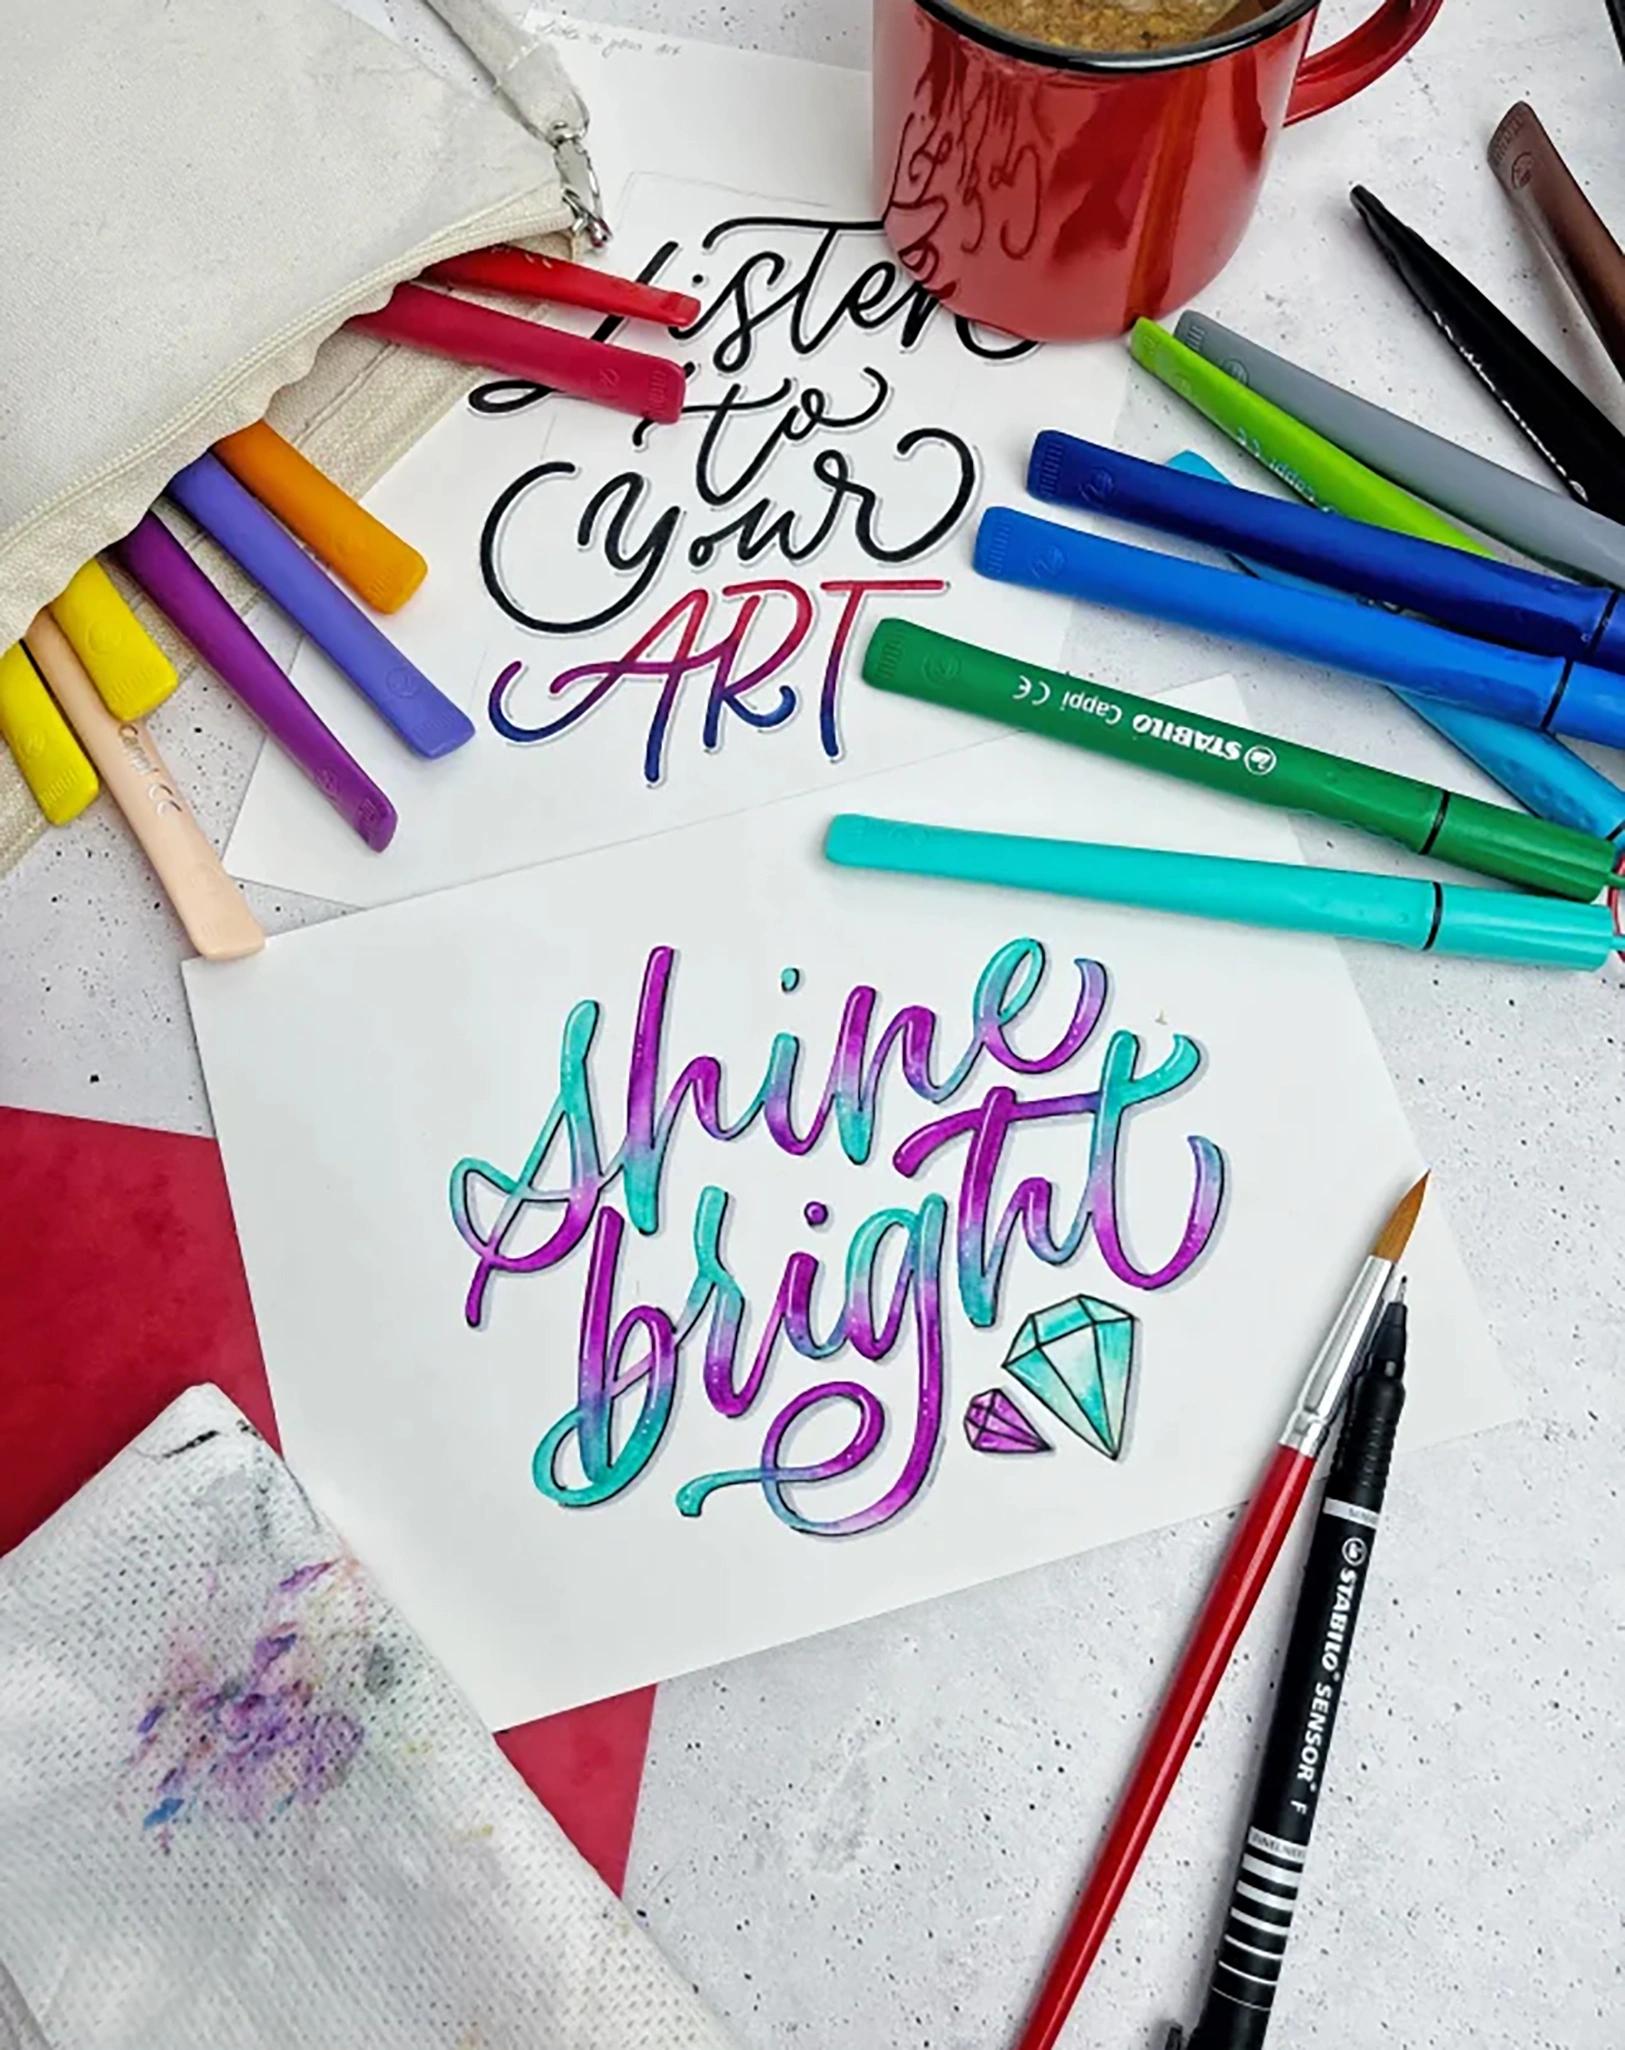 Listen
to
your
ART
Cappi CE
STABILO Cappi CE
shine
bright
STABILO® SENSOR® F